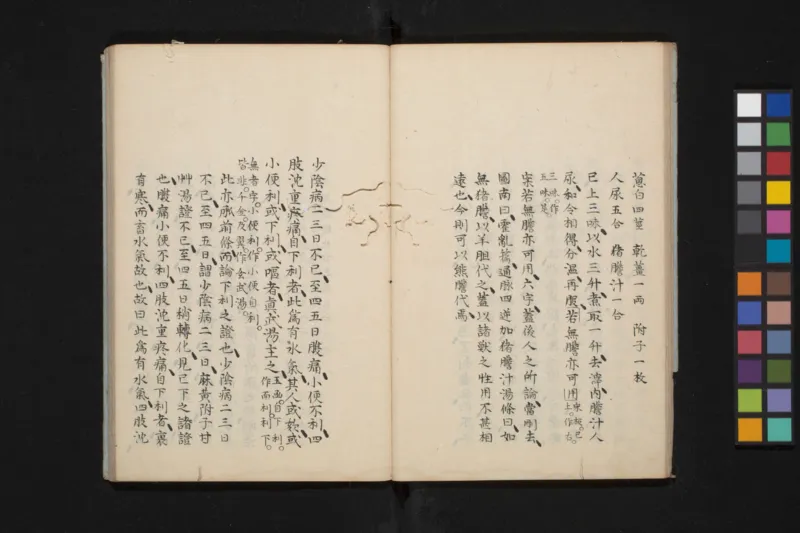 葱白四莖 乾薑一兩 附子一枚
人尿五合 猪膽汁一合
已上三味以水三升煮取一升去滓内膽汁人
尿和令相得分溫再服若無膽亦可用
三味作五味是
案若無膽亦可用六字蓋後人之所論當刪去
圖南曰霍亂篇通脉四逆加猪膽汁湯條曰如
無猪膽以羊胆代之蓋以諸獸之性用不甚相
遠也今則可以熊膽代焉
少陰病二三日不已至四五日腹痛小便不利四
肢沈重疼痛自下利者此爲有水氣其人或欬或
小便利或下利或嘔者眞武湯主之
玉函自下利作而利下
無者字小便利作小便自利
此亦承前條而論下利之證也少陰病二三日
不已至四五日謂少陰病二三日麻黄附子甘
艸湯證不已至四五日稍轉化見已下之諸證
也腹痛小便不利四肢沈重疼痛自下利者裏
有寒而畜水氣故也故曰此爲有水氣四肢沈